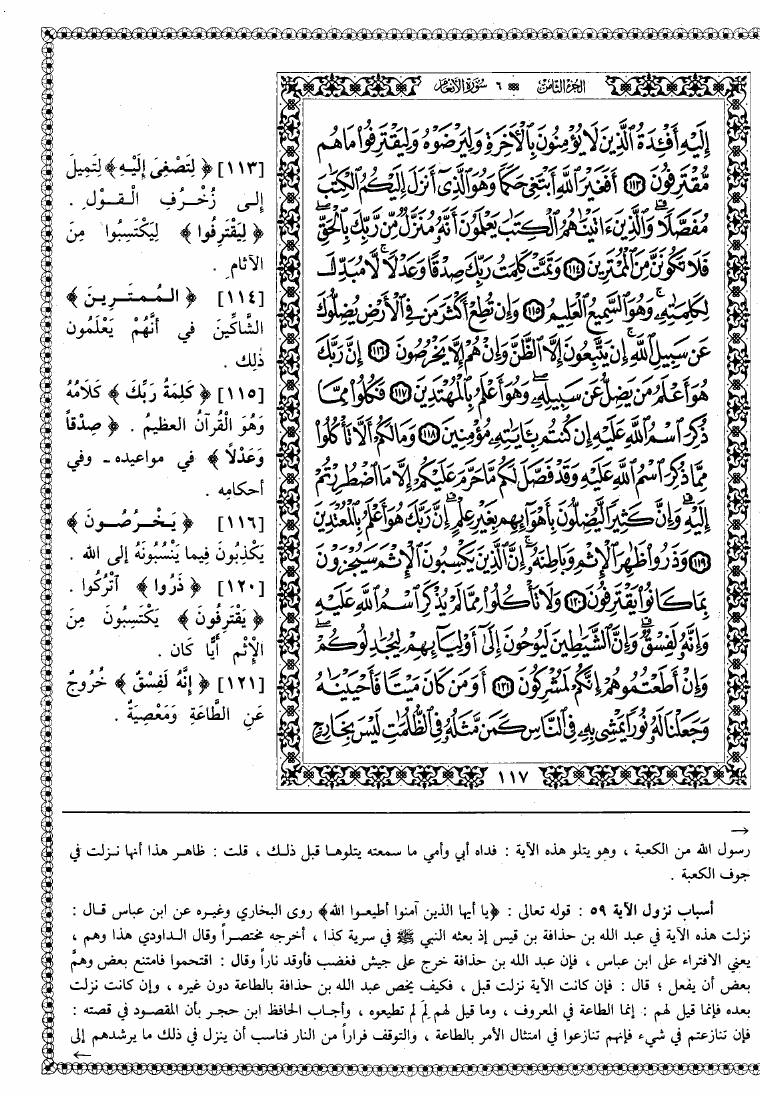 الجزء الثامن ٦ سورة الأنعام
إِلَيْهِ أَفْـِٔدَةُ ٱلَّذِينَ لَا يُؤْمِنُونَ بِٱلْءَاخِرَةِ وَلِيَرْضَوْهُ وَلِيَقْتَرِفُوا۟ مَا هُم
مُّقْتَرِفُونَ ١١٣ أَفَغَيْرَ ٱللَّهِ أَبْتَغِى حَكَمًا وَهُوَ ٱلَّذِىٓ أَنزَلَ إِلَيْكُمُ ٱلْكِتَٰبَ
مُفَصَّلًا ۚ وَٱلَّذِينَ ءَاتَيْنَٰهُمُ ٱلْكِتَٰبَ يَعْلَمُونَ أَنَّهُۥ مُنَزَّلٌ مِّن رَّبِّكَ بِٱلْحَقِّ ۖ
فَلَا تَكُونَنَّ مِنَ ٱلْمُمْتَرِينَ ١١٤ وَتَمَّتْ كَلِمَتُ رَبِّكَ صِدْقًا وَعَدْلًا ۚ لَّا مُبَدِّلَ
لِكَلِمَٰتِهِۦ ۚ وَهُوَ ٱلسَّمِيعُ ٱلْعَلِيمُ ١١٥ وَإِن تُطِعْ أَكْثَرَ مَن فِى ٱلْأَرْضِ يُضِلُّوكَ
عَن سَبِيلِ ٱللَّهِ ۚ إِن يَتَّبِعُونَ إِلَّا ٱلظَّنَّ وَإِنْ هُمْ إِلَّا يَخْرُصُونَ ١١٦ إِنَّ رَبَّكَ
هُوَ أَعْلَمُ مَن يَضِلُّ عَن سَبِيلِهِۦ ۖ وَهُوَ أَعْلَمُ بِٱلْمُهْتَدِينَ ١١٧ فَكُلُوا۟ مِمَّا
ذُكِرَ ٱسْمُ ٱللَّهِ عَلَيْهِ إِن كُنتُم بِـَٔايَٰتِهِۦ مُؤْمِنِينَ ١١٨ وَمَا لَكُمْ أَلَّا تَأْكُلُوا۟
مِمَّا ذُكِرَ ٱسْمُ ٱللَّهِ عَلَيْهِ وَقَدْ فَصَّلَ لَكُم مَّا حَرَّمَ عَلَيْكُمْ إِلَّا مَا ٱضْطُرِرْتُمْ
إِلَيْهِ ۗ وَإِنَّ كَثِيرًا لَّيُضِلُّونَ بِأَهْوَآئِهِم بِغَيْرِ عِلْمٍ ۗ إِنَّ رَبَّكَ هُوَ أَعْلَمُ بِٱلْمُعْتَدِينَ
١١٩ وَذَرُوا۟ ظَٰهِرَ ٱلْإِثْمِ وَبَاطِنَهُۥٓ ۚ إِنَّ ٱلَّذِينَ يَكْسِبُونَ ٱلْإِثْمَ سَيُجْزَوْنَ
بِمَا كَانُوا۟ يَقْتَرِفُونَ ١٢٠ وَلَا تَأْكُلُوا۟ مِمَّا لَمْ يُذْكَرِ ٱسْمُ ٱللَّهِ عَلَيْهِ
وَإِنَّهُۥ لَفِسْقٌ ۗ وَإِنَّ ٱلشَّيَٰطِينَ لَيُوحُونَ إِلَىٰٓ أَوْلِيَآئِهِمْ لِيُجَٰدِلُوكُمْ ۖ
وَإِنْ أَطَعْتُمُوهُمْ إِنَّكُمْ لَمُشْرِكُونَ ١٢١ أَوَمَن كَانَ مَيْتًا فَأَحْيَيْنَٰهُ
وَجَعَلْنَا لَهُۥ نُورًا يَمْشِى بِهِۦ فِى ٱلنَّاسِ كَمَن مَّثَلُهُۥ فِى ٱلظُّلُمَٰتِ لَيْسَ بِخَارِجٍ
١١٧
[١١٣] ﴿ لِتَصْغَى إِلَيْهِ ﴾ لِتَمِيلَ
إلى زُخْرُفِ الْقَوْلِ .
﴿ لِيَقْتَرِفُوا ﴾ لِيَكْتَسِبُوا مِنَ
الآثامِ .
[١١٤] ﴿ الـمُمتَـرِينَ ﴾
الشَّاكِّينَ في أنَّهُمْ يَعْلَمُون
ذلك .
[١١٥] ﴿ كَلِمَةُ رَبِّكَ ﴾ كَلَامُهُ
وَهُوَ الْقُرآنُ العظيمُ . ﴿ صِدْقاً
وَعَدْلاً ﴾ في مواعيده ـ وفي
أحكامِه .
[١١٦] ﴿ يَـخْـرُصُـونَ ﴾
يَكْذِبُونَ فِيما يَنْسُبُونَهُ إلى الله .
[١٢٠] ﴿ ذَرُوا ﴾ آتْرُكُوا .
﴿ يَقْتَرِفُونَ ﴾ يَكْتَسِبُونَ مِنَ
الإِثْم أيًّا كَان .
[١٢١] ﴿ إِنَّهُ لَفِسْقٌ ﴾ خُرُوجٌ
عَنِ الطَّاعَةِ وَمَعْصِيَةٌ .
→
رسول الله من الكعبة ، وهو يتلو هذه الآية : فداه أبي وأمي ما سمعته يتلوها قبل ذلك ، قلت : ظاهر هذا أنها نزلت في
جوف الكعبة .
أسباب نزول الآية ٥٩ : قوله تعالى : ﴿يا أيها الذين آمنوا أطيعوا الله﴾ روى البخاري وغيره عن ابن عباس قال :
نزلت هذه الآية في عبد الله بن حذافة بن قيس إذ بعثه النبي ﷺ في سرية كذا ، أخرجه مختصراً وقال الداودي هذا وهم ،
يعني الافتراء على ابن عباس ، فإن عبد الله بن حذافة خرج على جيش فغضب فأوقد ناراً وقال : اقتحموا فامتنع بعض وهمَّ
بعض أن يفعل ؛ قال : فإن كانت الآية نزلت قبل ، فكيف يخص عبد الله بن حذافة بالطاعة دون غيره ، وإن كانت نزلت
بعده فإنما قيل لهم : إنما الطاعة في المعروف ، وما قيل لهم لِمَ لم تطيعوه ، وأجاب الحافظ ابن حجر بأن المقصود في قصته :
فإن تنازعتم في شيء فإنهم تنازعوا في امتثال الأمر بالطاعة ، والتوقف فراراً من النار فناسب أن ينزل في ذلك ما يرشدهم إلى
←